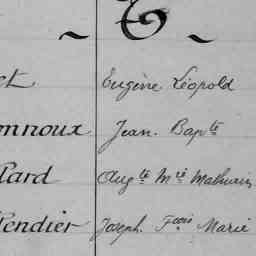 ~ T ~
et Eugène Léopold
onnoux Jean. Bapte
lard Augte Mie Mathurin
tendier Joseph. Fcois Marie